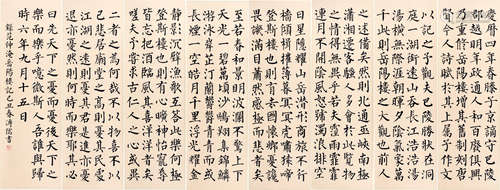 慶曆四年春滕子京謫守巴陵
郡越明年政通人和百廢具興
乃重修岳陽樓增其舊制刻唐
賢今人詩賦於其上屬予作文
以記之予觀夫巴陵勝狀在洞
庭一湖銜遠山吞長江浩浩湯
湯橫無際涯朝暉夕陰氣象萬
千此則岳陽樓之大觀也前人
之述備矣然則北通巫峽南極
瀟湘遷客騷人多會於此覽物
之情得無異乎若夫霪雨霏霏
連月不開陰風怒號濁浪排空
日星隱耀山岳潛形商旅不行
檣傾楫摧薄暮冥冥虎嘯猿啼
登斯樓也則有去國懷鄉憂讒
畏譏滿目蕭然感極而悲者矣
至若春和景明波瀾不驚上下
天光一碧萬頃沙鷗翔集錦鱗
游泳岸芷汀蘭鬱鬱青青而或
長煙一空皓月千里浮光耀金
靜影沉璧漁歌互答此樂何極
登斯樓也則有心曠神怡寵辱
皆忘把酒臨風其喜洋洋者矣
嗟夫予嘗求古仁人之心或異
二者之為何哉不以物喜不以
己悲居廟堂之高則憂其民處
江湖之遠則憂其君是進亦憂
退亦憂然則何時而樂耶其必
曰先天下之憂而憂後天下之
樂而樂乎噫微斯人吾誰與歸
時六年九月十五日
錄范仲淹岳陽樓記己丑春溥儒書